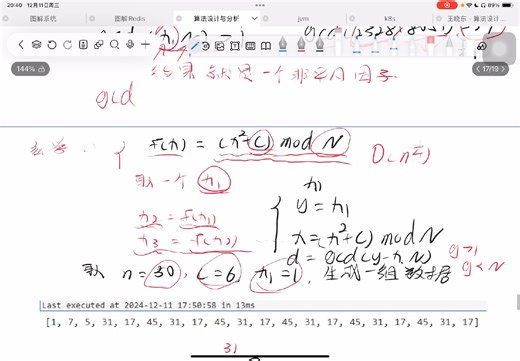 20:40 12月11日周三
89%
图解系统 图解Redis 算法设计与分析 jvm k8s 王晓东 - 算法设计...
144% 17/19
结果就是一个非平凡因子
gcd
f(x) = (x²+C) mod N
取一个 x₁
x₁
y = x₁
x₂ = f(x₁)
x = (x²+C) mod N
x₃ = f(x₂)
d = gcd(y-x, N)
取 n=50, C=6, x₁=1, 生成一组数据
Last executed at 2024-12-11 17:50:58 in 13ms
[1, 7, 5, 31, 17, 45, 31, 17, 45, 31, 17, 45, 31, 17, 45, 31, 17, 45, 31, 17]
31